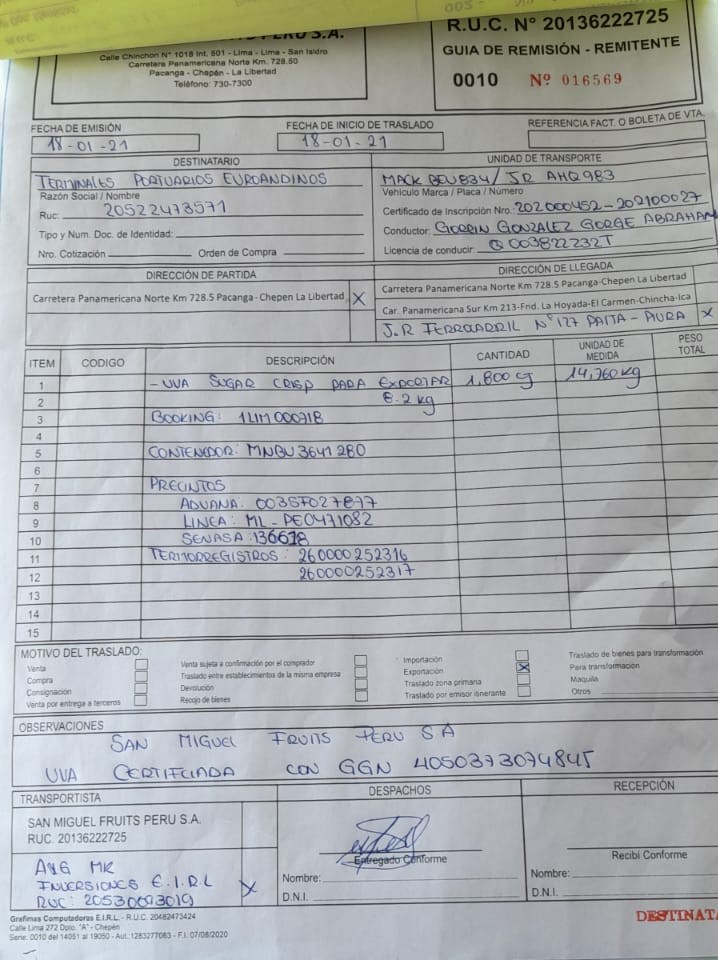 PERU S.A.
Calle Chinchon N° 1018 Int. 501 - Lima - Lima - San Isidro
Carretera Panamericana Norte Km. 728.50
Pacanga - Chepén - La Libertad
Teléfono: 730-7300
R.U.C. N° 20136222725
GUIA DE REMISIÓN - REMITENTE
0010 Nº 016569
FECHA DE EMISIÓN
18-01-21
FECHA DE INICIO DE TRASLADO
18-01-21
REFERENCIA FACT. O BOLETA DE VTA.
DESTINATARIO
TERMINALES PORTUARIOS EUROANDINOS
Razón Social / Nombre
Ruc: 20522473571
Tipo y Num. Doc. de Identidad:
Nro. Cotización Orden de Compra
UNIDAD DE TRANSPORTE
MACK BEU834/ JR AHQ983
Vehículo Marca / Placa / Número
Certificado de Inscripción Nro.: 202000452 - 202100027
Conductor: GORRIN GONZALEZ GORGE ABRAHAM
Licencia de conducir: Q003822232T
DIRECCIÓN DE PARTIDA
Carretera Panamericana Norte Km 728.5 Pacanga-Chepen La Libertad X
DIRECCIÓN DE LLEGADA
Carretera Panamericana Norte Km 728.5 Pacanga-Chepen La Libertad
Car. Panamericana Sur Km 213-Fnd. La Hoyada-El Carmen-Chincha-Ica
J.R FERROCARRIL N°127 PAITA - PIURA X
ITEM CODIGO DESCRIPCIÓN CANTIDAD UNIDAD DE MEDIDA PESO TOTAL
1 - UVA SUGAR CRISP PARA EXPORTAR 1,800 cj 14,760 kg
2 8.2 kg
3 BOOKING: 1LIM000718
4
5 CONTENEDOR: MNBU 3641280
6
7 PRECINTOS
8 ADUANA: 00357027877
9 LINEA: ML-PE0471082
10 SENASA: 136678
11 TERMORREGISTROS: 260000252316
12 260000252317
13
14
15
MOTIVO DEL TRASLADO:
Venta
Compra
Consignación
Venta por entrega a terceros
Venta sujeta a confirmación por el comprador
Traslado entre establecimientos de la misma empresa
Devolución
Recojo de bienes
Importación
Exportación X
Traslado zona primaria
Traslado por emisor itinerante
Traslado de bienes para transformación
Para transformación
Maquila
Otros
OBSERVACIONES
SAN MIGUEL FRUITS PERU S A
UVA CERTIFCIADA CON GGN 4050373074845
TRANSPORTISTA
SAN MIGUEL FRUITS PERU S.A.
RUC. 20136222725
INVERSIONES E.I.R.L X
RUC: 20530093019
DESPACHOS
Entregado Conforme
Nombre:
D.N.I.
RECEPCIÓN
Recibi Conforme
Nombre:
D.N.I.
Grafimas Computadoras E.I.R.L. - R.U.C. 20482473424
Calle Lima 272 Dpto. "A" - Chepén
Serie: 0010 del 14051 al 19050 - Aut.: 1283277083 - F.I. 07/08/2020
DESTINAT